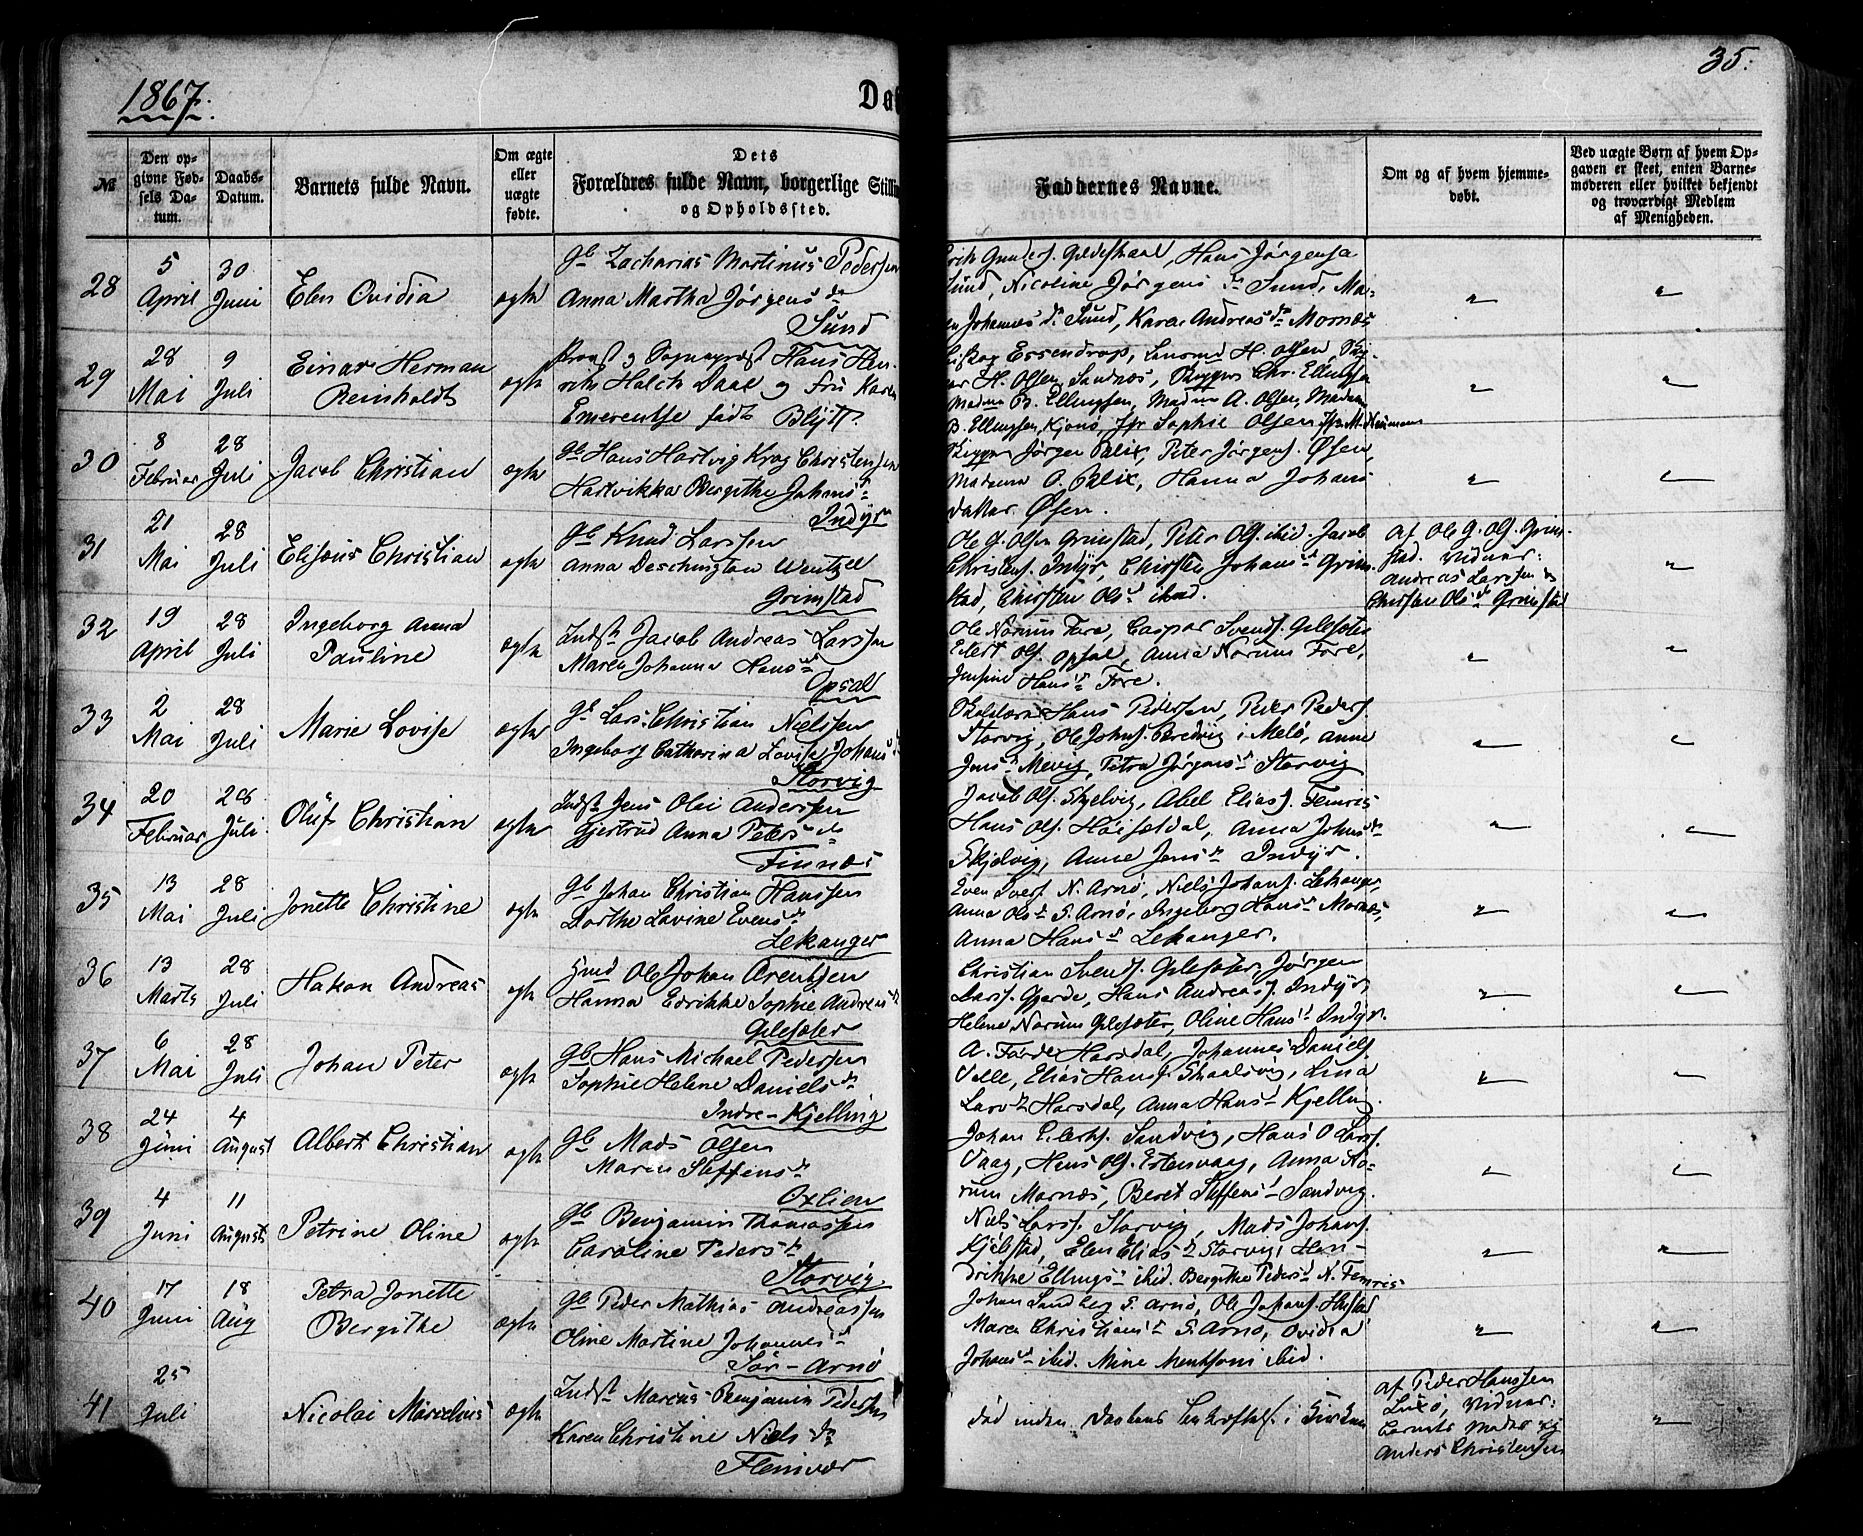 1867.
35.
Da
№
Den opgivne Fødsels Datum.
Daabs-Datum.
Barnets fulde Navn.
Om ægte eller uægte fødte.
Dets Forældres fulde Navn, borgerlige Stilli
og Opholdssted.
Faddernes Navne.
Om og af hvem hjemmedøbt.
Ved uægte Børn af hvem Opgaven er skeet, enten Barnemoderen eller hvilket bekjendt og troværdigt Medlem af Menigheden.
28
5 April
30 Juni
Elen Ovidia
ægte
Gb Zacharias Martinus Pedersen
Anna Martha Jørgensdr
Sund
Gildeskaal, Hans Jørgensen
Sund, Nicoline Jørgensdr Sund, Ma-
Johannesdr Sund, Karen Andreasdr Mornæs
29
28 Mai
9 Juli
Einar Herman
Reinholdt
ægte
Provst og Sognepræst Hans Hen-
rik Halch Daae og Fru Karen
Emerentse født Blytt.
Essendrop, Lensmd H. Olsen,
H. Olsen Sandnæs, Skipper Chr. Ellingsen
Madam B. Ellingsen, Madam A. Olsen, Madam
B. Ellingsen, Kjønø, Jfr Sophie Olsen
30
8 Februar
28 Juli
Jacob Christian
ægte
Gb Hans Hartvig Krog Christensen
Hartvikka Bergithe Johansdr
Indyr
Skipper Jørgen Blix, Peter Jørgens. Øsen,
Madam O. Blix, Hanna Johans
datter Øsen.
31
21 Mai
28 Juli
Elisæus Christian
ægte
Gb Knud Larssen
Anna Deschington Wentzel
Grimstad
Ole G. Olsen Grimstad, Peter Ols. ibid. Jacob
Christens. Indyr, Chirsten Johansdr Grim-
stad, Chirsten Olsdr ibid.
af Ole G. Ols. Grim-
stad. Vidner:
Andreas Larssen og
Chirsten Olsdr Grimstad
32
19 April
28 Juli
Ingeborg Anna
Pauline
ægte
Indst Jacob Andreas Larssen
Maren Johanna Hansdr
Opsal
Ole Norum Fore, Caspar Svends. Gilesæter
Elert Ols. Opsal, Anna Norum Fore,
Hansdr Fore.
33
2 Mai
28 Juli
Marie Lovise
ægte
Gb Lars Christian Nielssen
Ingeborg Catharina Lovise Johansdr
Storvig
Hans Pedersen, Peter Peders.
Storvig, Ole Johns. Bredvig i Melø, Anne
Jensdr Mevig, Petra Jørgensdr Storvig
34
20 Februar
28 Juli
Oluf Christian
ægte
Indst Jens Olai Anderssen
Gjertrud Anna Petersdr
Finnæs
Jacob Ols. Skjelvig, Abel Elias. Femris
Hans Ols. Høiseldal, Anna Johnsdr
Skjelvig, Anne Jensdr Indyr.
35
13 Mai
28 Juli
Jonette Christine
ægte
Gb Johan Christian Hanssen
Dorthe Lavine Evensdr
Lekanger
Even Ivers. N. Arnø, Niels Johans. Lekanger,
Anna Olsdr S. Arnø, Ingeborg Hansdr Mornæs,
Anna Hansdr Lekanger.
36
13 Marts
28 Juli
Hakon Andreas
ægte
Ole Johan Arentsen
Hanna Edrikke Sophie Andreasdr
Gilesæter
Christian Svends. Gilesæter, Jørgen
Larss. Gjerde, Hans Andreass. Indyr,
Helene Norum Gilesæter, Oline Hansdr Indyr.
37
6 Mai
28 Juli
Johan Peter
ægte
Gb Hans Michael Pedersen
Sophie Helene Danielsdr
Indre-Kjelling
A. Førde Horsdal, Johannes Daniels.
Velle, Elias Hans. Skaalsvig, Lina
Larsdr Horsdal, Anna Hansdr Kjelling.
38
24 Juni
4 August
Albert Christian
ægte
Gb Mads Olsen
Maren Steffensdr
Oxlien
Johan Elerts. Sandvig, Hans O Larss.
Vaag, Hans Ols. Estensvaag, Anna No-
rum Mornæs, Beret Steffensdr Sandvig.
39
4 Juni
11 Augusts
Petrine Oline
ægte
Gb Benjamin Thomassen
Caroline Pedersdr
Storvig
Niels Larss. Storvig, Mads Johans.
Kjelstad, Elen Eliasdr Storvig, Hen-
drikke Ellingsdr ibid. Bergithe Pedersdr N. Femris
40
17 Juni
18 Aug
Petra Jonette
Bergithe
ægte
Gb Peder Mathias Andreassen
Oline Martine Johannesdr
Sør-Arnø
Johan Lundberg S. Arnø, Ole Johans. Hustad
Maren Christiansdr S. Arnø, Ovidia
Johansdr ibid. Mine Mentsoni ibid.
41
25 Juli
Nicolai Marcelius
ægte
Indst Marcus Benjamin Pedersen
Karen Christine Nielsdr
Flemvær
død inden Daabens Bekræftelse i Kirken
af Peder Hanssen
Vidner:
Anders Christensen